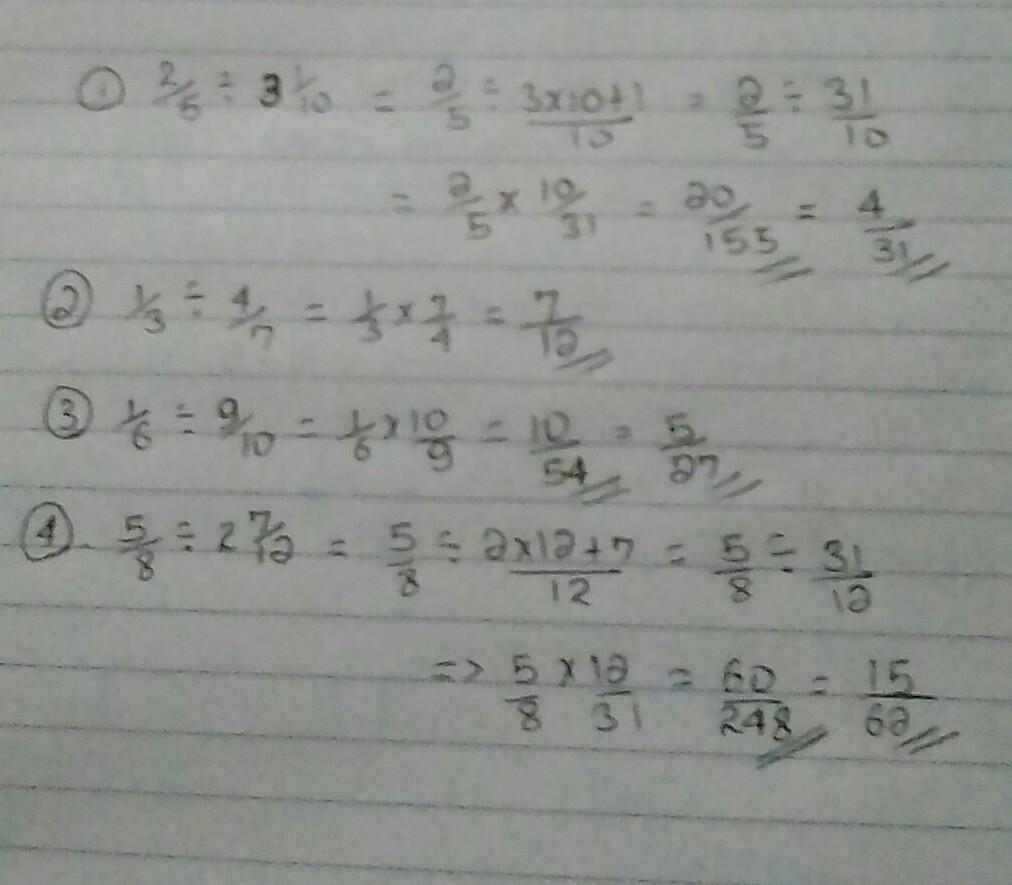 ① 2/5 ÷ 3 1/10 = 2/5 ÷ 3×10+1/10 = 2/5 ÷ 31/10
= 2/5 × 10/31 = 20/155 = 4/31
② 1/3 ÷ 4/7 = 1/3 × 7/4 = 7/12
③ 1/6 ÷ 9/10 = 1/6 × 10/9 = 10/54 = 5/27
④ 5/8 ÷ 2 7/12 = 5/8 ÷ 2×12+7/12 = 5/8 ÷ 31/12
=> 5/8 × 12/31 = 60/248 = 15/62